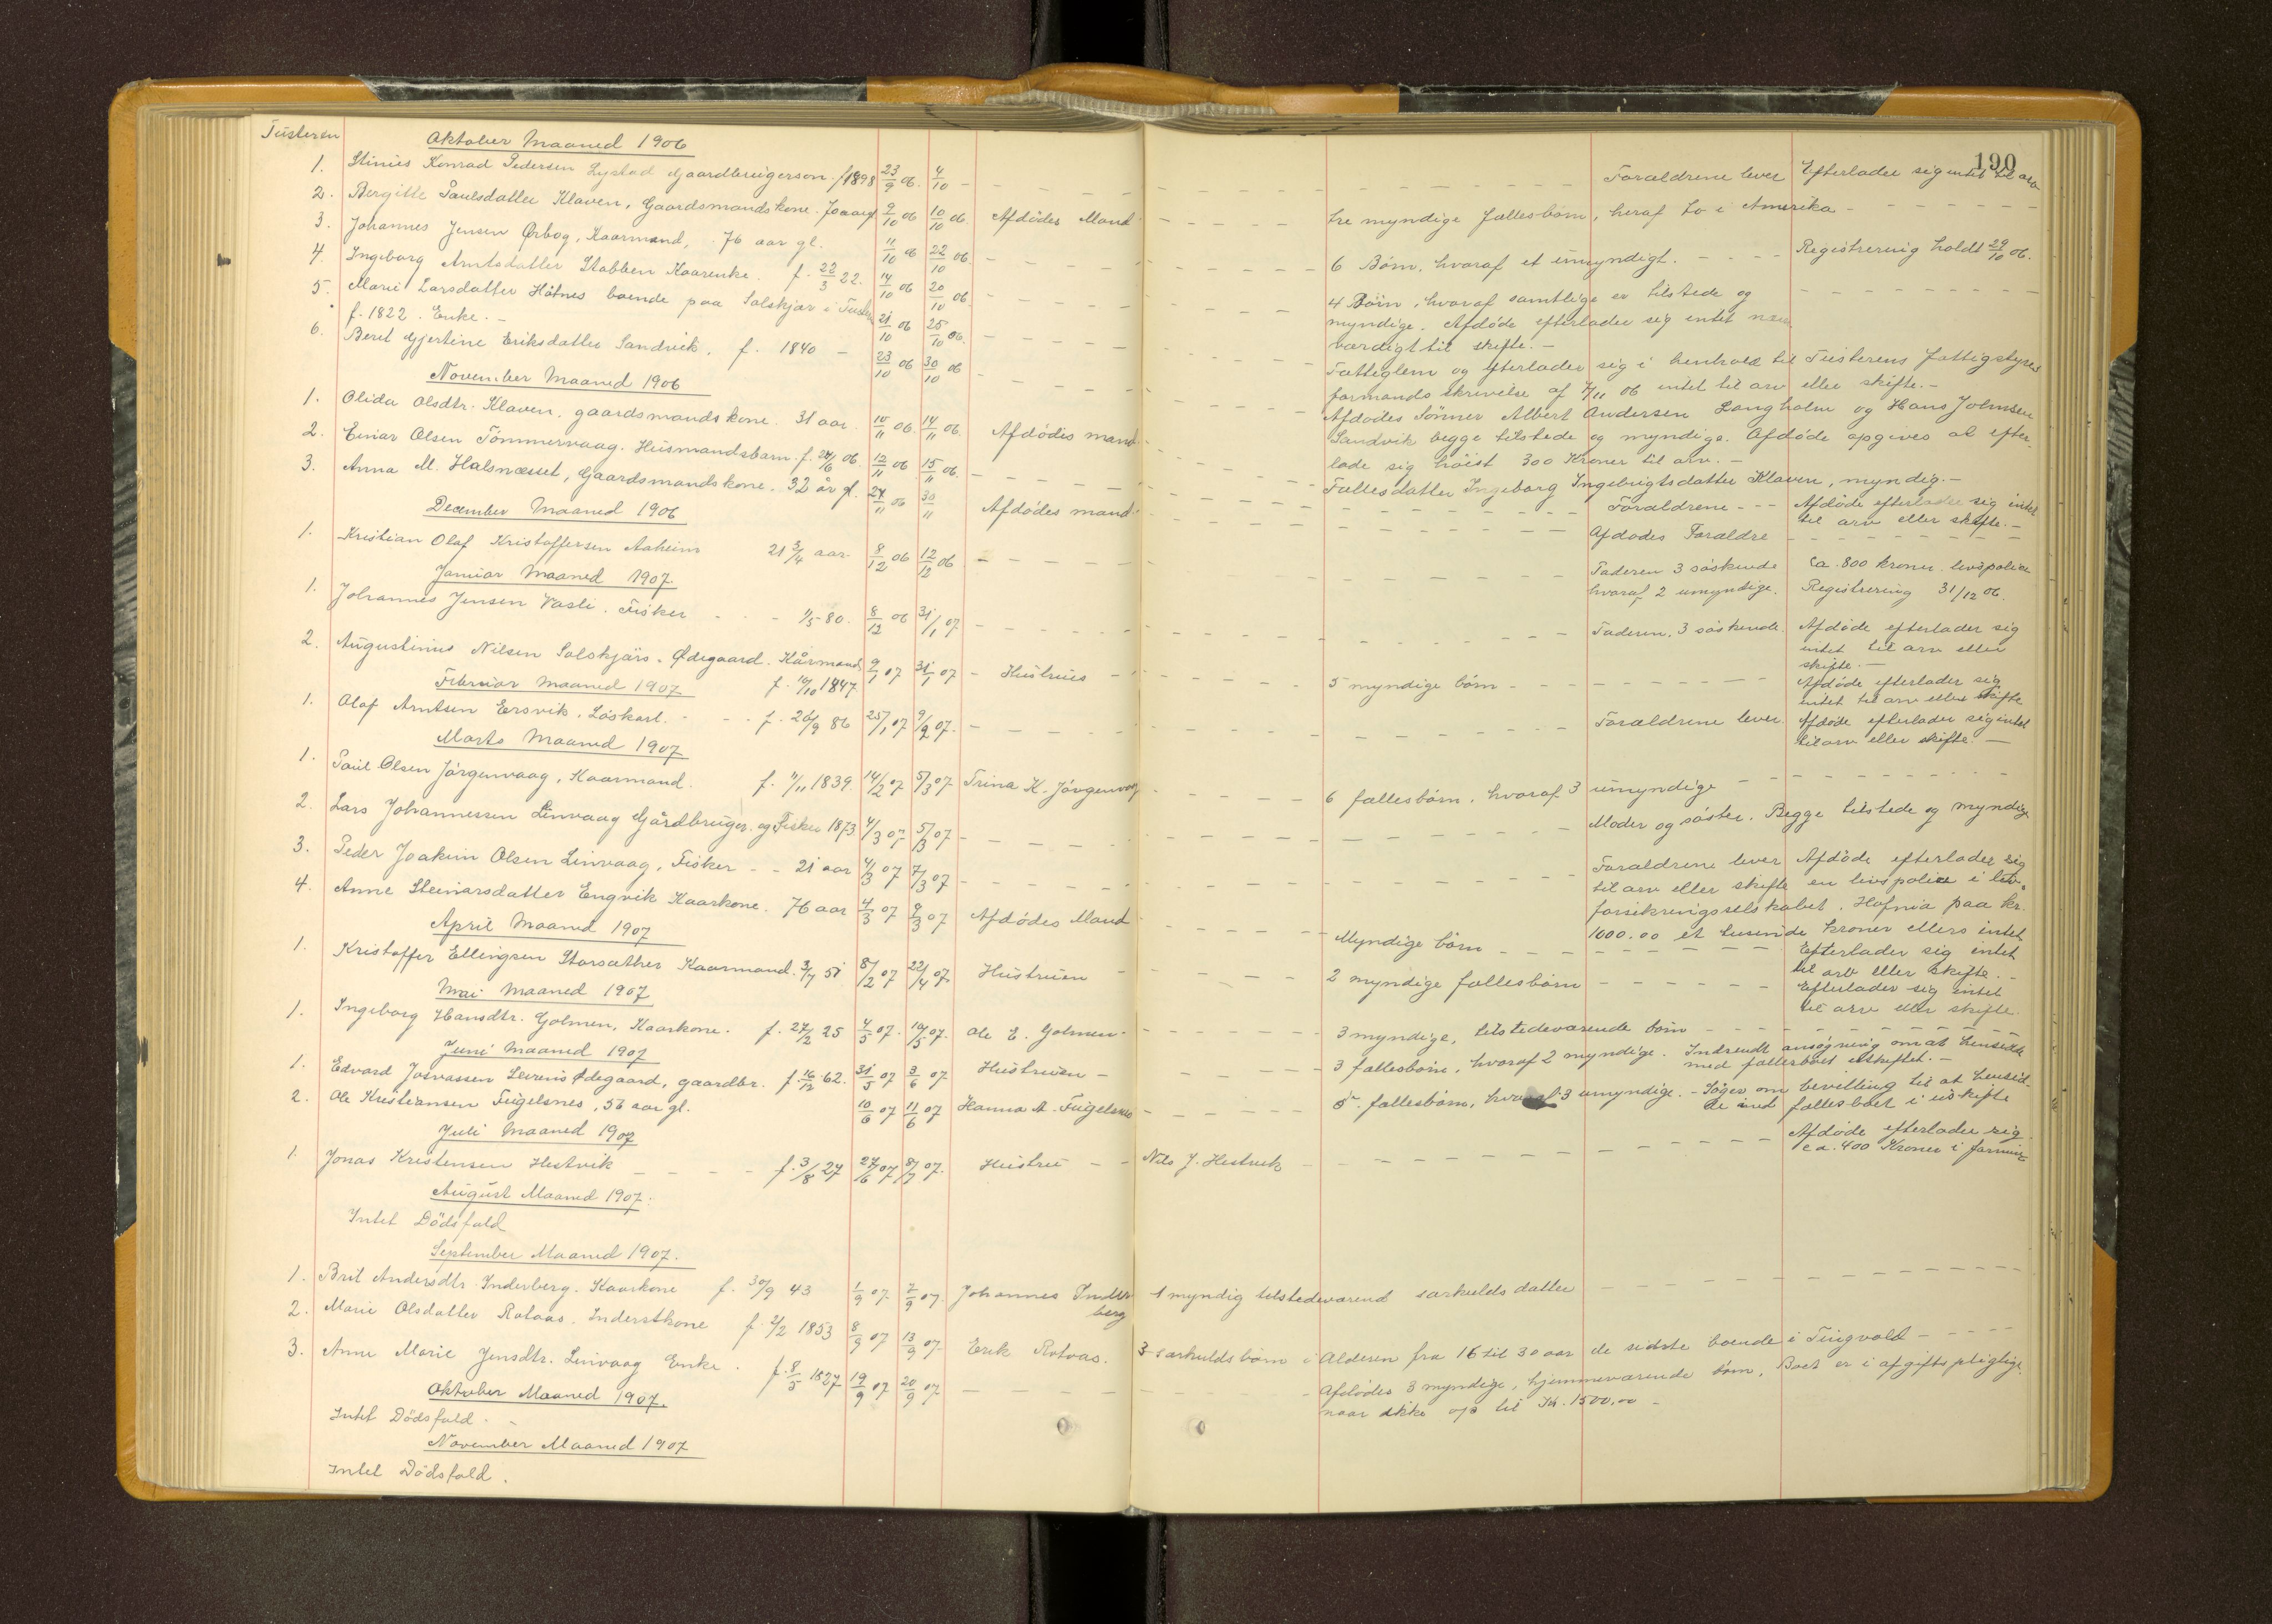 Tusteren
190
Oktober Maaned 1906
1. Stinius Konrad Pedersen Lystad Gaardbrugerson. f 1898 23/9 06. 4/10 - - - - Forældrene lever Efterlader sig intet til arv
2. Bergitte Paulsdatter Klaven, Gaardsmandskone. 70 aar gl 9/10 06 10/10 06 Afdødes Mand - - - tre myndige fællesbørn, heraf to i Amerika - - -
3. Johannes Jensen Ørbog, Kaarmand, 76 aar gl. 11/10 06 22/10 06. - - - 6 Børn, hvoraf et umyndigt. - - - Registrering holdt 29/10 06.
4. Ingeborg Arntsdatter Stabben Kaarenke. f. 22/3 22. 14/10 06 20/10 06. - - - 4 Børn, hvoraf samtlige er tilstede og
myndige. Afdøde efterlader sig intet næv
værdigt til skifte. -
5. Marie Larsdatter Håtnes boende paa Solskjær i Tuster
f. 1822. Enke. - 21/10 06 25/10 06. - - - Fatteglem og efterlader sig i henhold til Tusterens Fattigstyres
formands skrivelse af 7/11 06 intet til arv eller skifte. -
6. Beret Gjertine Eriksdatter Sandvik. f. 1840 - 23/10 06 30/10 06 - - - Afdødes Sønner Albert Andersen Langholm og Hans Johnsen
Sandvik begge tilstede og myndige. Afdøde opgives at efter
lade sig høist 300 Kroner til arv. -
November Maaned 1906
1. Olida Olsdtr. Klaven. gaardsmandskone. 31 aar. 10/11 06. 14/11 06. Afdødes mand - - - Fællesdatter Ingeborg Ingebrigtsdatter Klaven, myndig. -
2. Einar Olsen Tömmervaag. Husmandsbarn. f. 24/6 06. 12/11 06 15/11 06. - - - Forældrene - - - Afdøde efterlader sig intet
til arv eller skifte. -
3. Anna M. Halsnæsset, Gaardsmandskone. 32 år gl. 24/11 06 30/11 Afdødes mand - - - Afdødes Forældre - - -
December Maaned 1906
1. Kristian Olaf Kristoffersen Aaheim 21 3/4 aar. 8/12 06 12/12 06 - - - Faderen 3 søskende Ca. 800 kroner livspolice
hvoraf 2 umyndige. Registrering 31/12 06.
Januar Maaned 1907.
1. Johannes Jensen Vasli. Fisker - - - 11/5 80. 8/12 06 31/1 07. - - - Faderen, 3 søskende. Afdøde efterlader sig
intet til arv eller
skifte. -
2. Augustinus Nilsen Solskjærs-Ødegaard. Kårmand
f. 14/10 1847. 9/1 07 31/1 07 - Hustrues - - - 5 myndige børn - - - Afdøde efterlader sig
intet til arv eller skifte
Februar Maaned 1907
1. Olaf Arntsen Eersvik. Løskarl. - - - f. 26/9 86 25/1 07 9/2 07. - - - Forældrene lever. Afdøde efterlader sig intet
til arv eller skifte. -
Marts Maaned 1907
1. Paul Olsen Jörgenvaag, Kaarmand. f. 11/11 1839. 14/2 07 5/3 07 Trina K. Jörgenvaag - - - 6 fællesbørn, hvoraf 3 umyndige - - -
2. Lars Johannessen Linvaag Gjårdbruger. og Fisker 1873 4/3 07 5/3 07 - - - Moder og søster. Begge tilstede og myndige
3. Peder Joakim Olsen Linvaag, Fisker - - 21 aar 4/3 07 7/3 07 - - - Forældrene lever Afdøde efterlader sig
til arv eller skifte en livspolice i liv-
forsikringsselskabet. Hafnia paa kr.
1000.00 et tusende kroner ellers intet.
4. Anne Steinarsdatter Engvik Kaarkone. 76 aar 4/3 07 9/3 07 Afdødes Mand - - - Myndige børn - - - Efterlader sig intet
til arv eller skifte. -
April Maaned 1907
1. Kristoffer Ellingsen Storsæther Kaarmand. 3/7 51 8/2 07 22/4 07. Hustruen - - - 2 myndige fællesbørn - - - Efterlader sig intet
til arv eller skifte.
Mai Maaned 1907
1. Ingeborg Hansdtr. Golmen, Kaarkone. f. 27/2 25 4/5 07. 10/5 07. Ole E. Golmen - - - 3 myndige, tilstedeværende børn - - -
Juni Maaned 1907
1. Edvard Josvassen Leviens Ødegaard, gaardbr. f. 16/12 62. 31/5 07 3/6 07 Hustruen - - - 3 fællesbørn, hvoraf 2 myndige. Indsendt ansøgning om at hensidde
med fællesboet uskiftet. -
2. Ole Kristiansen Fugelsnes, 56 aar gl. 10/6 07 11/6 07 Hanna A. Fugelsnes - - - 5. fællesbørn, hvoraf 3 umyndige. - Søger om bevilling til at hensid-
de med fællesboet i uskifte
Juli Maaned 1907
1. Jonas Kristensen Hestvik - - - f. 3/8 27 27/6 07 8/7 07. Hustru - - Nils J. Hestvik - - - Afdøde efterlader sig
ca. 400 Kroner i formue
August Maaned 1907.
Intet Dödsfald
September Maaned 1907.
1. Brit Andersdtr. Inderberg. Kaarkone f. 30/9 43 1/9 07 7/9 07. Johannes Inder
berg 1 myndig tilstedeværend særkulds datter - - -
2. Marie Olsdatter Rotaas. Inderstkone f. 2/2 1853 8/9 07 13/9 07. Erik Rotaas. 3 særkuldsbørn i Alderen fra 16 til 30 aar de sidste boende i Tingvold - - -
3. Anne Marie Jensdtr. Linvaag Enke. f. 8/5 1827 19/9 07 20/9 07 - - - Afdødes 3 myndige, hjemmeværende børn. Boet er i afgiftspligtige.
naar ikke op til Kr. 1500,00 -
Oktober Maaned 1907.
Intet Dödsfald. -
November Maaned 1907
Intet Dödsfald.